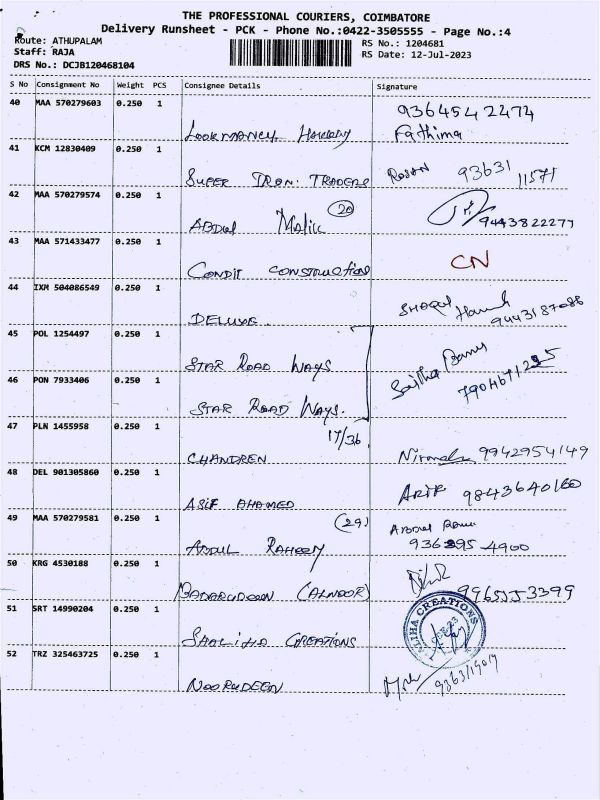 THE PROFESSIONAL COURIERS, COIMBATORE
Delivery Runsheet - PCK - Phone No.:0422-3505555 - Page No.:4
Route: ATHUPALAM
RS No.: 1204681
Staff: RAJA
RS Date: 12-Jul-2023
DRS No.: DCJB120468104
S No Consignment No Weight PCS Consignee Details Signature
40 MAA 570279603 0.250 1 9364542474
Fathima
41 KCM 12830409 0.250 1
SUPER IRON. TRADERS Rosan 93631 11571
42 MAA 570279574 0.250 1
ABDUL Malic (20) 9443822277
43 MAA 571433477 0.250 1
CONDIT CONSTRUCTION CN
44 IXM 504086549 0.250 1
DELUXE.
45 POL 1254497 0.250 1
STAR ROAD WAYS
46 PON 7933406 0.250 1
STAR ROAD WAYS.
47 PLN 1455958 0.250 1 17/36
CHANDREN Nirmala 9942954149
48 DEL 901305860 0.250 1
ASIF AHAMED ARIF 9843640160
49 MAA 570279581 0.250 1 (29)
ABDUL RAHEEM
50 KRG 4530188 0.250 1
BADARUDEEN (ALNOOR) 9965553399
51 SRT 14990204 0.250 1
SHALIHA CREATIONS
ALIHA CREATIONS
52 TRZ 325463725 0.250 1
NOORUDEEN